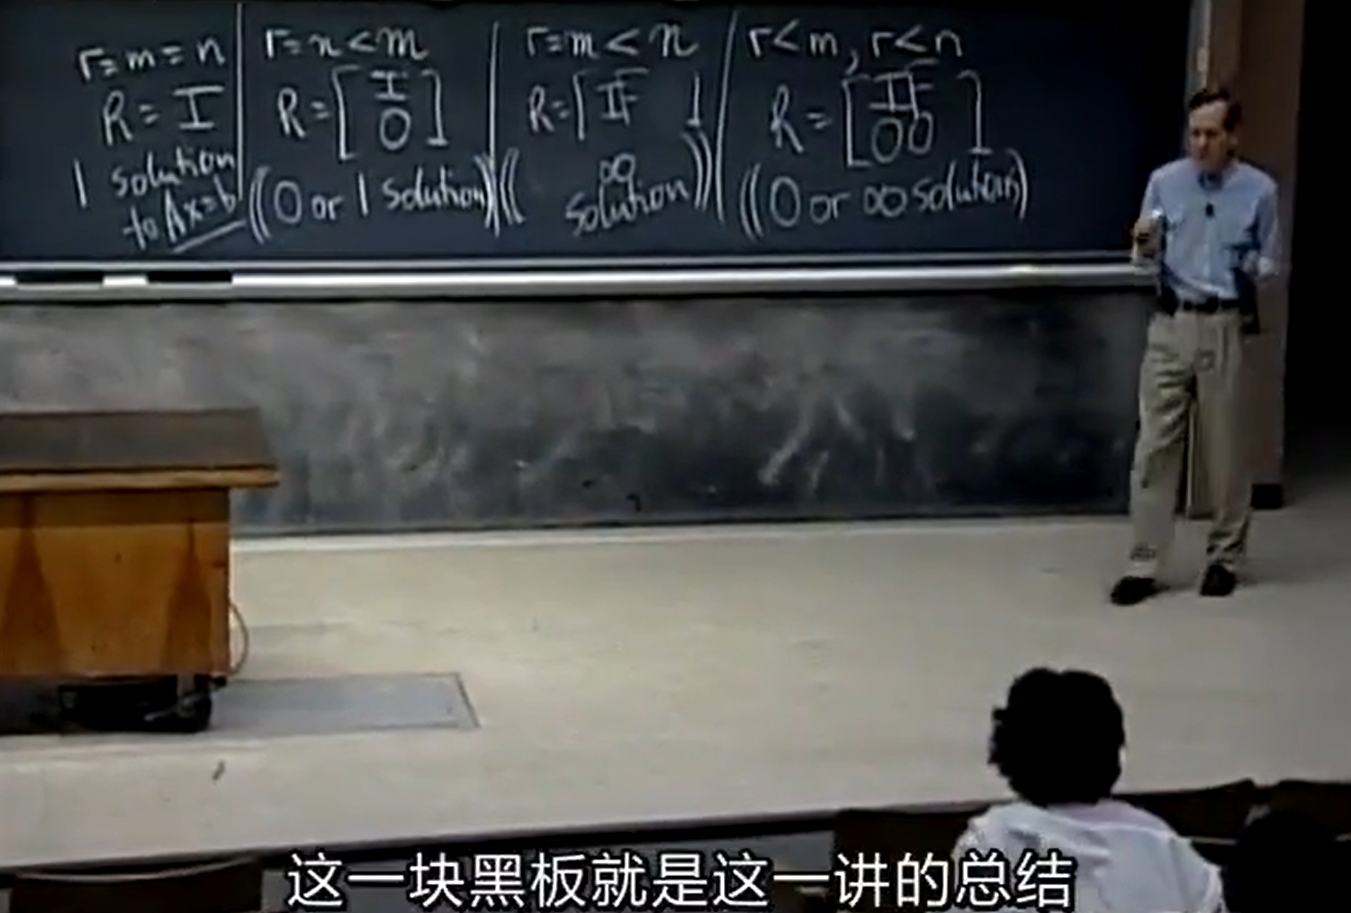 r=m=n
R=I
1 solution
to Ax=b
r=n<m
R=[I
0]
(0 or 1 solution)
r=m<n
R=[IF]
(∞
solution)
r<m, r<n
R=[IF
00]
(0 or ∞ solutions)
这一块黑板就是这一讲的总结